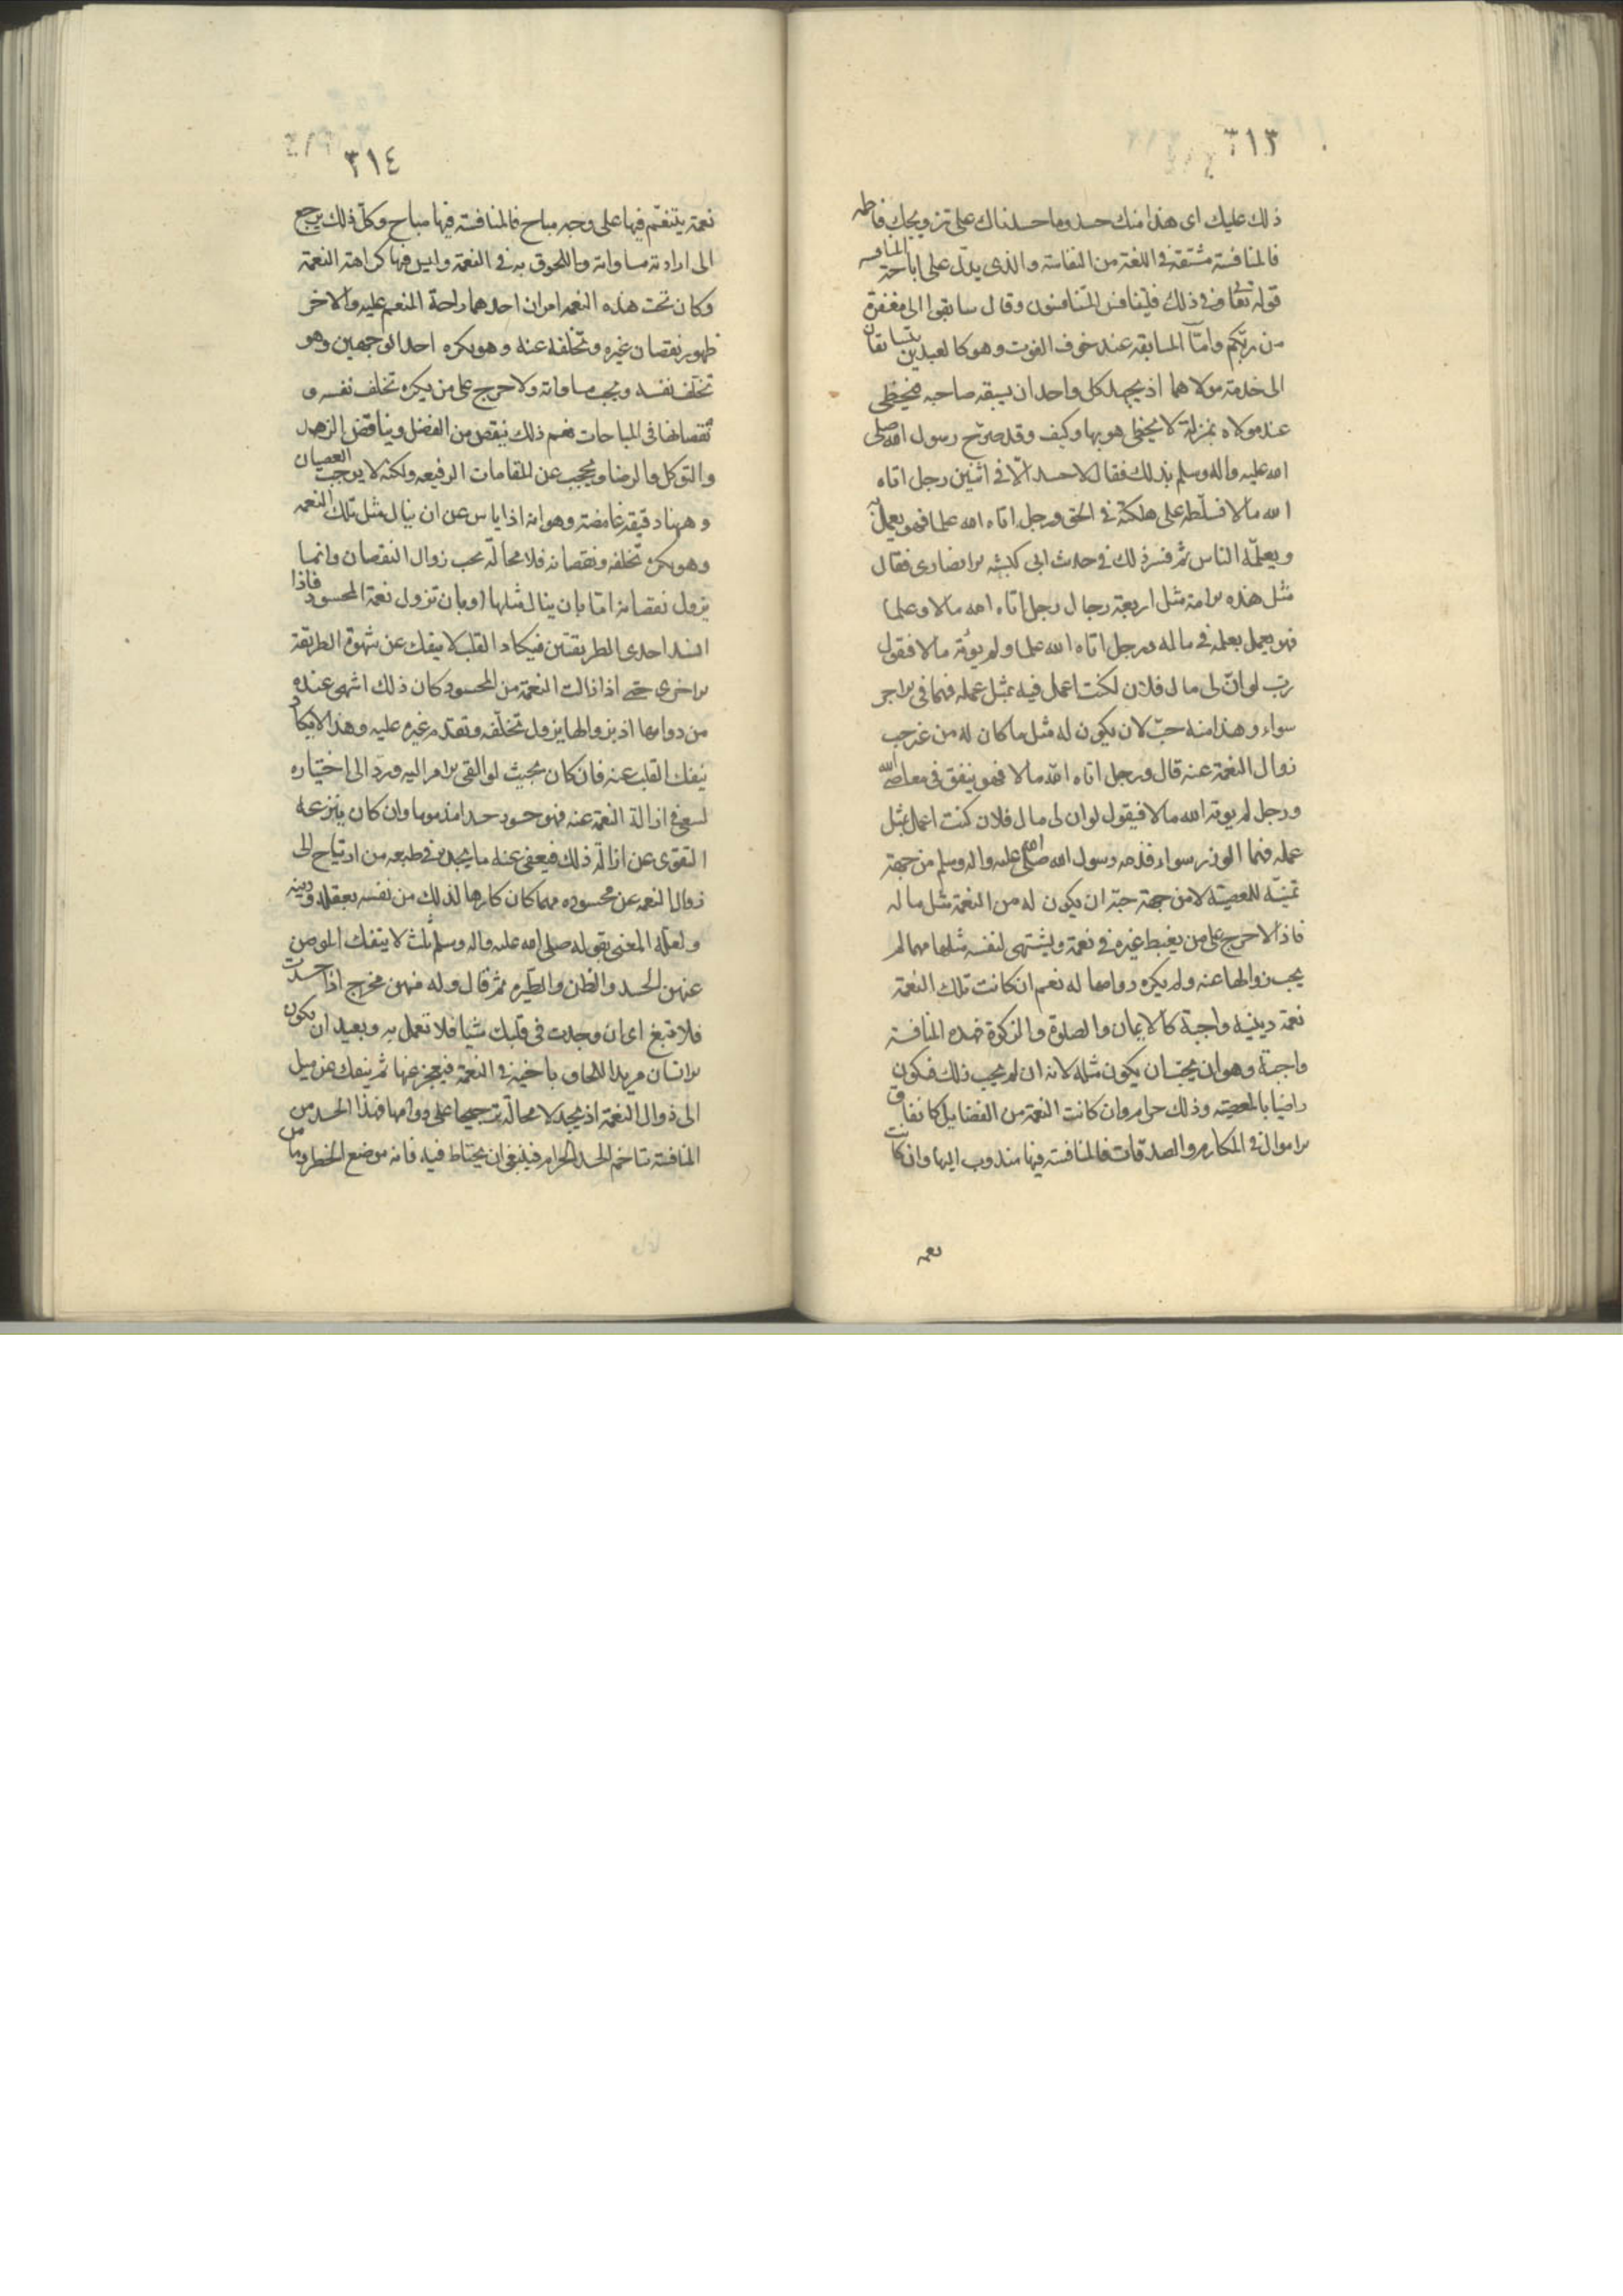 ٣١٣
ذلك عليك اى هذا منك حسد وما حسدناك على تزويجك فاطمه
فالمنافسة مشتقة فى اللغة من النفاسة والذى يدل على اباحة المنافسه
قوله تعالى وفى ذلك فليتنافس المتنافسون وقال سابقوا الى مغفرة
من ربكم وامّا المسابقه عند خوف الفوت وهو كالعبدين يتسابقان
الى خدمة مولاهما اذ يجهد كل واحد ان يسبقه صاحبه فيحظى
عند مولاه بمنزلة لا يحظى هو بها وكيف وقد صرّح رسول الله صلى
الله عليه واله وسلم بذلك فقال لا حسد الّا فى اثنين رجل اتاه
الله مالا فسلّطه على هلكته فى الحق ورجل اتاه الله علما فهو يعمل به
ويعلّمه الناس ثم فسر ذلك فى حديث ابى كبشه الانصارى فقال
مثل هذه الامة مثل اربعة رجال رجل اتاه الله مالا وعلما
فهو يعمل بعلمه فى ماله ورجل اتاه الله علما ولم يؤته مالا فيقول
ربّ لو انّ لى مال فلان لكنت اعمل فيه بمثل عمله فهما فى الاجر
سواء وهذا منه حبّ لان يكون له مثل ما كان له من غير حب
زوال النعمة عنه قال ورجل اتاه الله مالا فهو ينفق فى معاصى الله
ورجل لم يوته الله مالا فيقول لو ان لى مال فلان كنت اعمل بمثل
عمله فهما الوزر سواء فذمه رسول الله صلى الله عليه واله وسلم من جهة
تمنيّه للمعصيّة لا من جهة حبّه ان يكون له من النعمة مثل ما له
فاذا لا حرج على من يغبط غيره فى نعمة ويشتهى لنفسه مثلها مهما لم
يحب زوالها عنه ولم يكره دوامها له نعم ان كانت تلك النعمة
نعمة دينية واجبة كالايمان والصلوة والزكوة فهذه المنافسة
واجبة وهو ان يحبّ ان يكون مثله لانه ان لم يحب ذلك فيكون
راضيا بالمعصيّة وذلك حرام وان كانت النعمة من الفضايل كانفاق
الاموال فى المكارم والصدقات فالمنافسة فيها مندوب اليها وان كانت
نعمه
٣١٤
نعمة يتنعّم فيها على وجه مباح فالمنافسة فيها مباح وكلّ ذلك يرجع
الى ارادته مساواته واللحوق به فى النعمة وليس فيها كراهة النعمة
وكان تحت هذه النعمه امران احدهما راحة المنعم عليه والاخر
ظهور نقصان غيره وتخلفه عنه وهو يكره احد الوجهين وهو
تخلّف نفسه ويحب مساواته ولا حرج على من يكره تخلف نفسه و
نقصانها فى المباحات نعم ذلك ينقص من الفضل ويناقض الزهد
والتوكل والرضا ويحجب عن المقامات الرفيعه ولكنه لا يوجب العصيان
وههنا دقيقه غامضة وهو انه اذا ايس عن ان ينال مثل تلك النعمه
وهو يكره تخلفه ونقصانه فلا محالة يحب زوال النقصان وانما
يزول نقصانه امّا بان ينال مثلها او بان تزول نعمة المحسود فاذا
انسد احدى الطريقتين فيكاد القلب لا ينفك عن شهوة الطريقة
الاخرى حتى اذا زالت النعمة من المحسود كان ذلك اشهى عنده
من دوامها اذ بزوالها يزول تخلّفه وتقدم غيره عليه وهذا لا يكاد
ينفك القلب عنه فان كان بحيث لو القى الامر اليه ورد الى اختياره
لسعى فى ازالة النعمة عنه فهو حسود حسدا مذموما وان كان ينزعه
التقوى عن ازالة ذلك فيعفى عنه ما يجده فى طبعه من ارتياح الى
زوال النعمه عن محسوده مهما كان كارها لذلك من نفسه بعقله ودينه
ولعلّه المعنى بقوله صلى الله عليه واله وسلم ثلث لا ينفك المومن
عنهن الحسد والظن والطيره ثم قال وله منهن مخرج اذا حسدت
فلا تبغ اى ان وجدت فى قلبك شيا فلا تعمل به وبعيد ان يكون
الانسان مريدا للحاق باخيه فى النعمة فيعجز عنها ثم ينفك عن ميل
الى زوال النعمة اذ يجد لا محالة ترجيحا على دوامها فهذا الحد من
المنافسة تتاخم الحسد الحرام فينبغى ان يحتاط فيه فانه موضع الخطر وما من